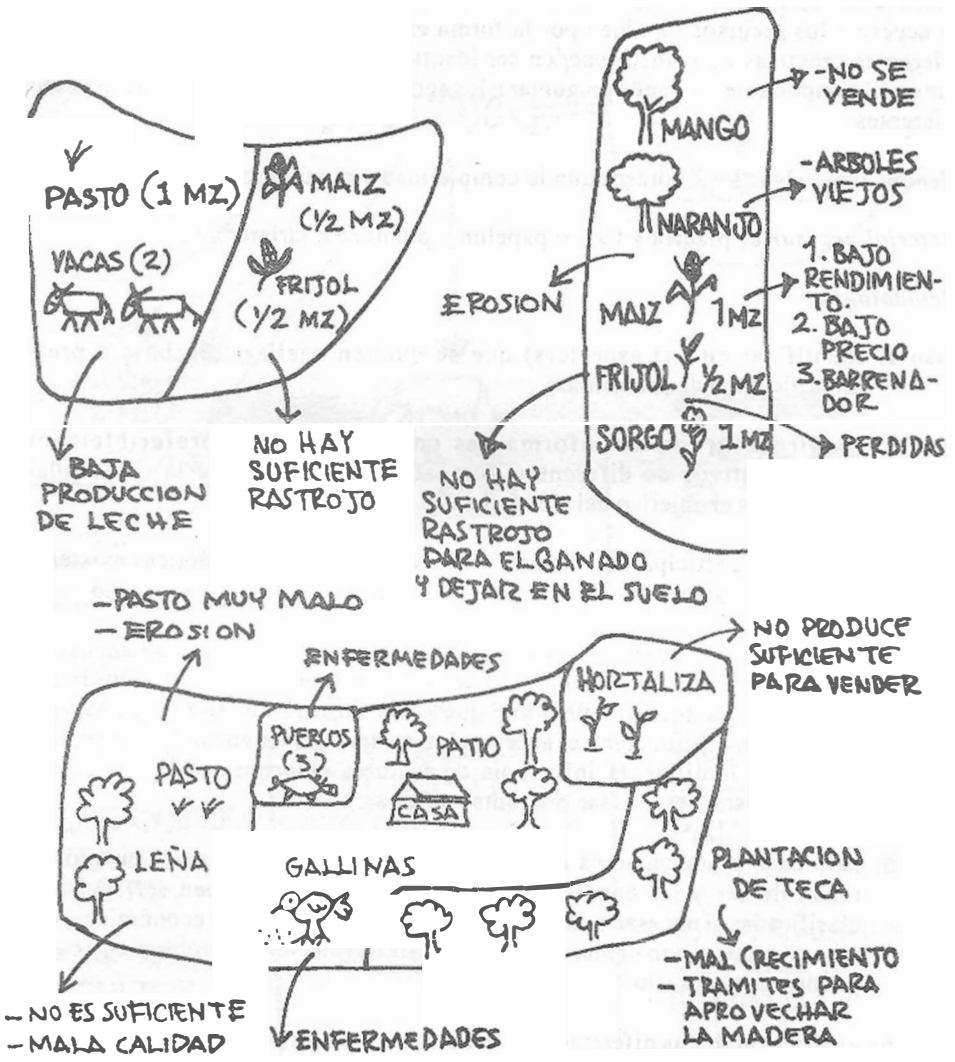 PASTO (1 MZ)
VACAS (2)
MAIZ
(1/2 MZ)
FRIJOL
(1/2 MZ)
BAJA
PRODUCCION
DE LECHE
NO HAY
SUFICIENTE
RASTROJO
MANGO
-NO SE
VENDE
NARANJO
-ARBOLES
VIEJOS
EROSION
MAIZ 1 MZ
1. BAJO
RENDIMIEN-
TO.
2. BAJO
PRECIO
3. BARRENA-
DOR
FRIJOL 1/2 MZ
SORGO 1 MZ
PERDIDAS
NO HAY
SUFICIENTE
RASTROJO
PARA EL GANADO
Y DEJAR EN EL SUELO
-PASTO MUY MALO
-EROSION
ENFERMEDADES
PUERCOS
(3)
PASTO
PATIO
CASA
HORTALIZA
NO PRODUCE
SUFICIENTE
PARA VENDER
LEÑA
GALLINAS
PLANTACION
DE TECA
-MAL CRECIMIENTO
-TRAMITES PARA
APROVECHAR
LA MADERA
-NO ES SUFICIENTE
-MALA CALIDAD
ENFERMEDADES